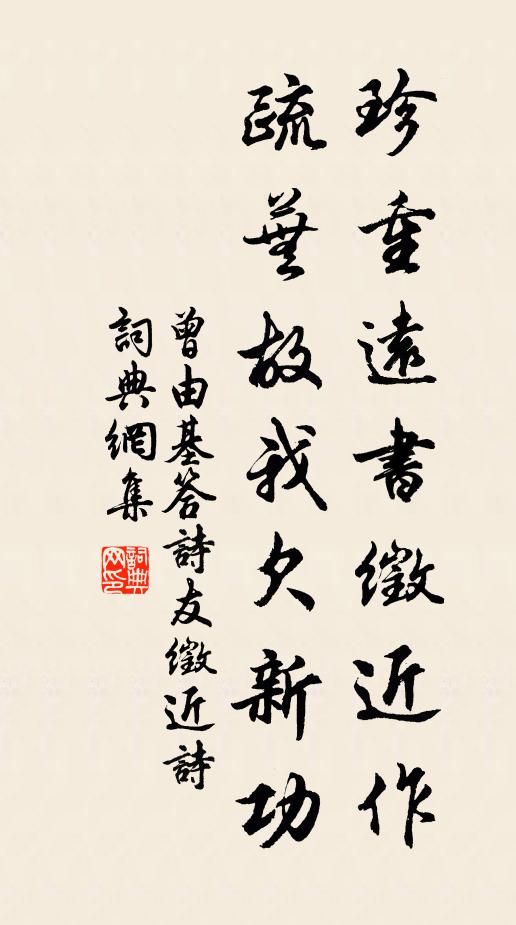 珍重遠書徵近作
疏蕪故我欠新功
曾由基答詩友徵近詩
詞典網集
詞典网印